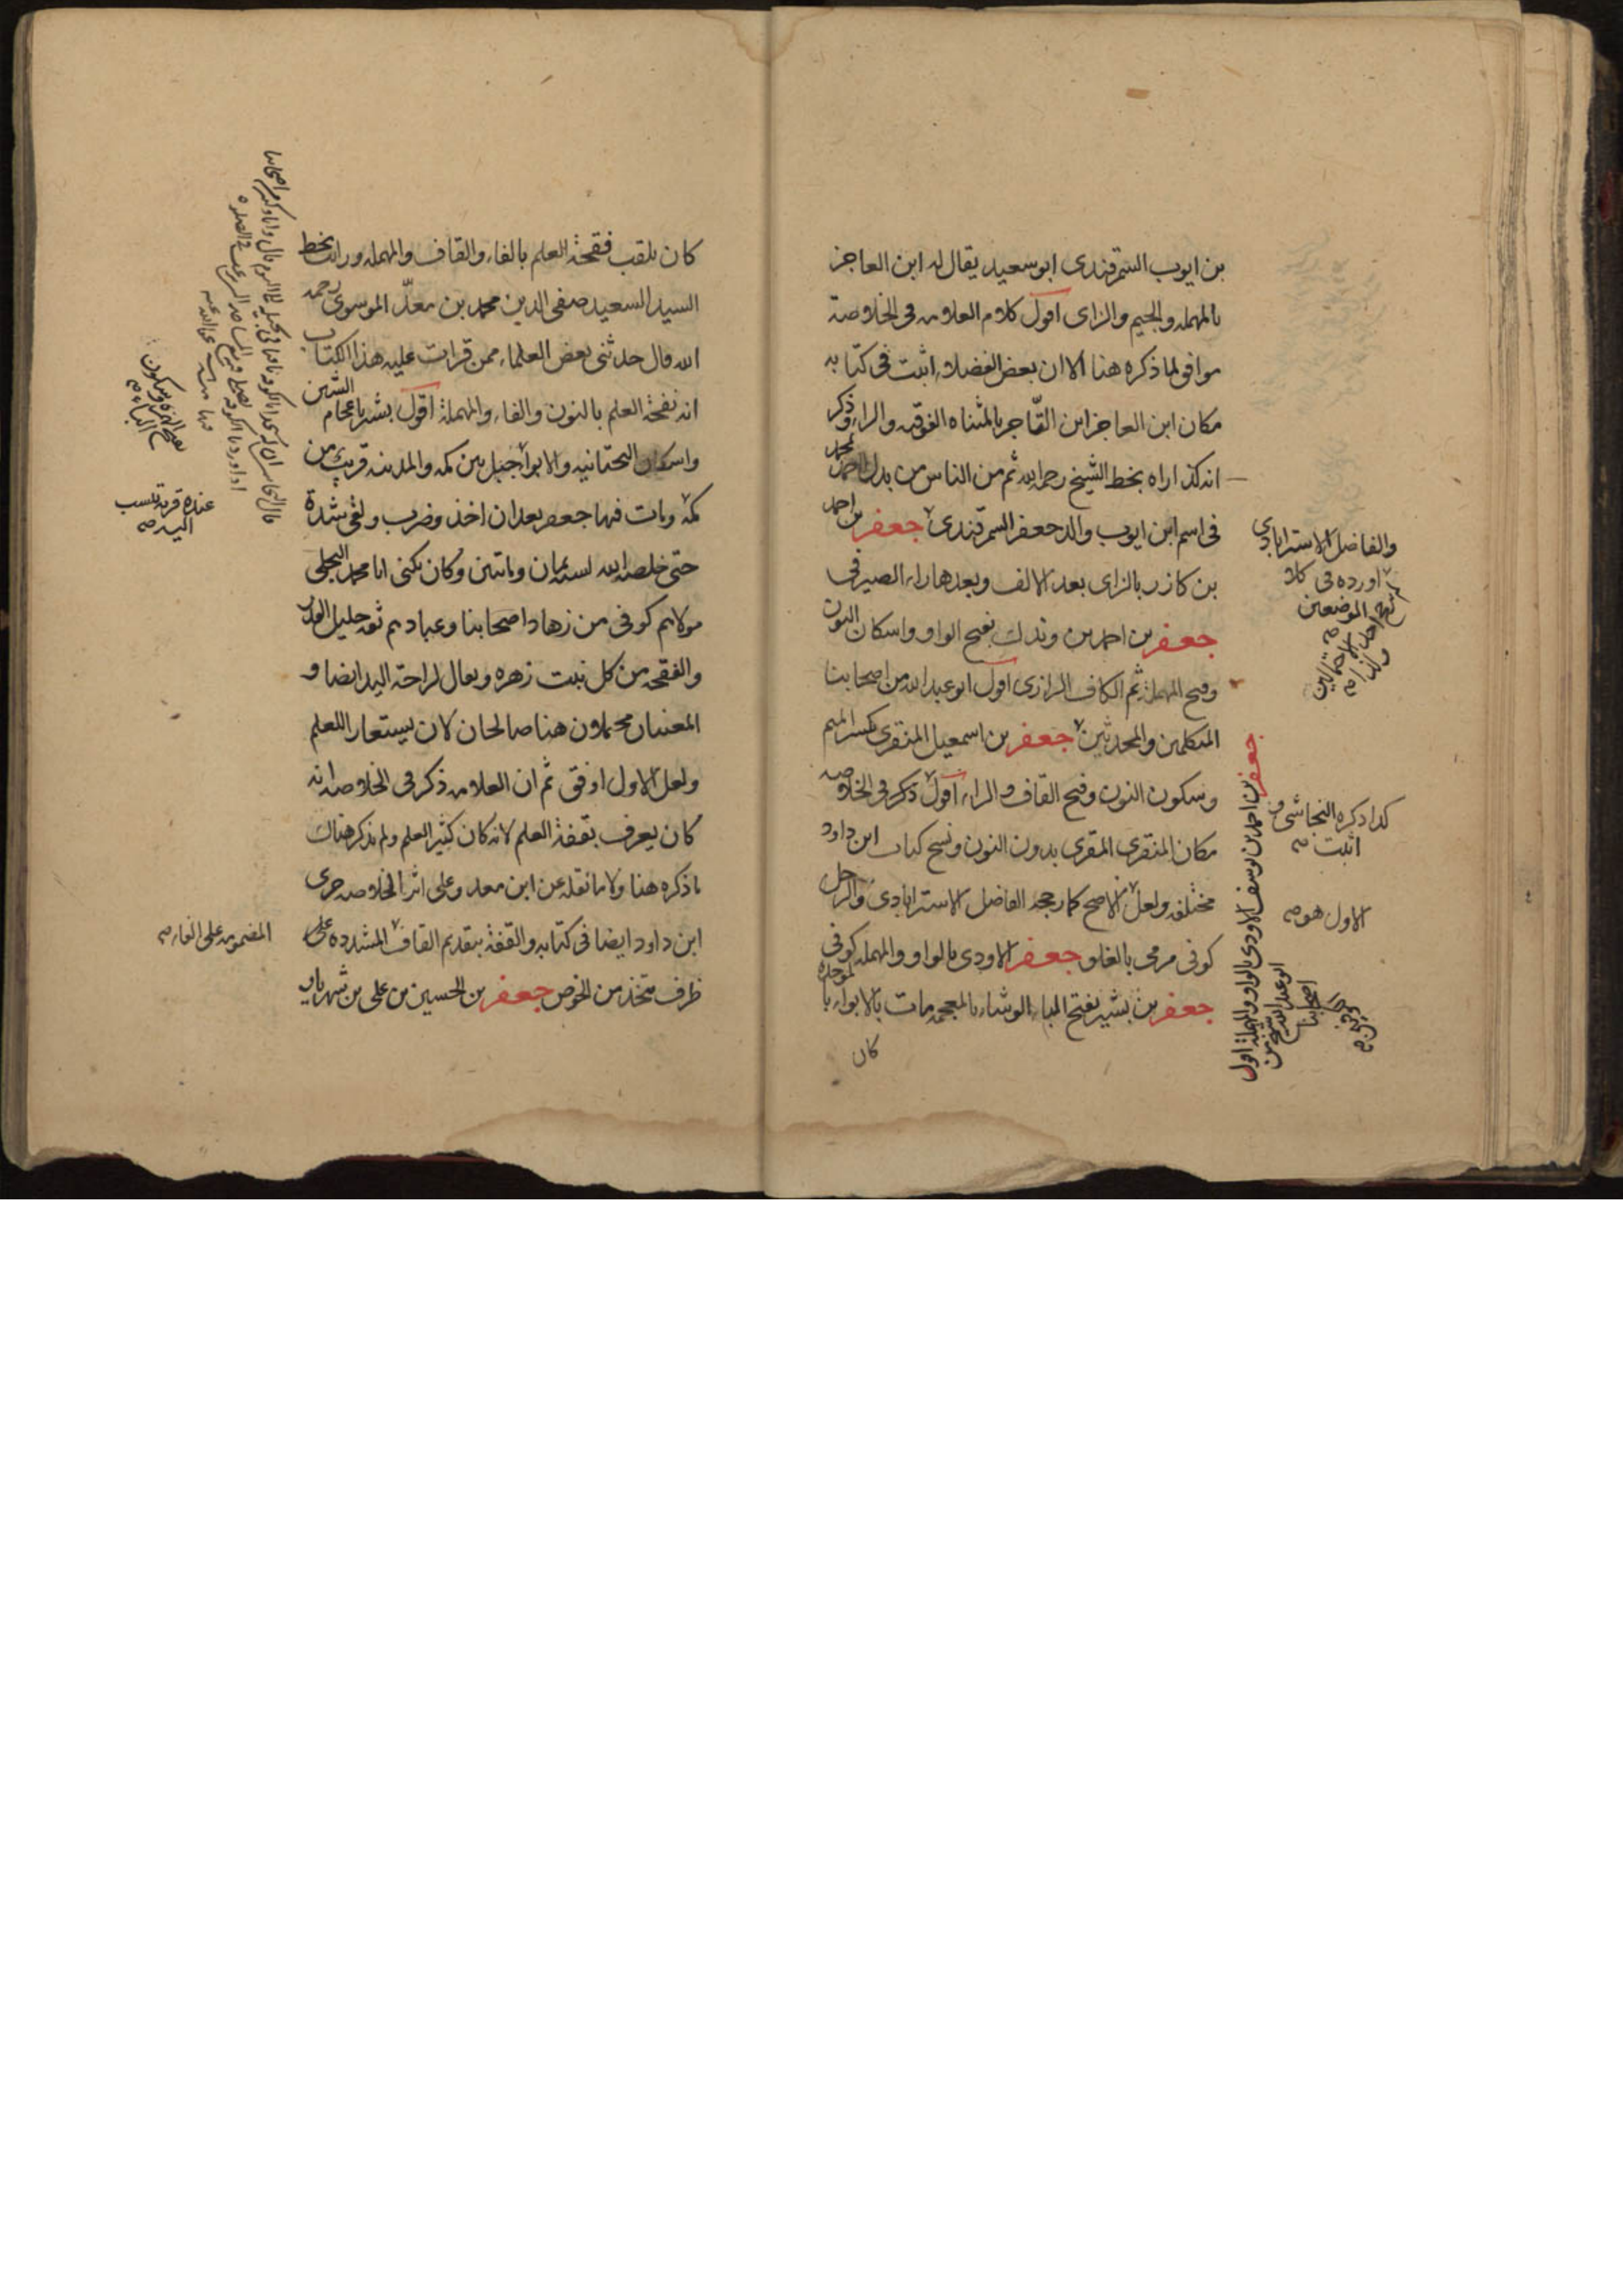 بن ايوب السمرقندى ابو سعيد يقال له ابن العاجز
بالمهملة والجيم والزاى اقول كلام العلامه فى الخلاصة
موافق لما ذكره هنا الا ان بعض الفضلاء اثبت فى كتابه
مكان ابن العاجز ابن التّاجر بالمثناه الفوقيه والراء وذكر
انه كذا راه بخط الشيخ رحمه الله ثم من الناس من بدل احمد بمحمد
فى اسم ابن ايوب والد جعفر السمرقندى جعفر بن احمد
بن كازر بالزاى بعد الالف وبعدها راء الصيرفى
جعفر بن احمد بن وندك بفتح الواو واسكان النون
وفتح المهملة ثم الكاف الرازى اقول ابو عبد الله من اصحابنا
المتكلمين والمحدثين جعفر بن اسمعيل المنقرى بكسر الميم
وسكون النون وفتح القاف والراء اقول ذكر فى الخلاصه
مكان المنقرى المقرى بدون النون ونسخ كتاب ابن داود
مختلفه ولعل الاصح كما رجحه الفاضل الاسترابادى والرجل
كوفى مرمى بالغلو جعفر الاودى بالواو والمهمله كوفى
جعفر بن بشير بفتح الباء الوشاء بالمعجمه مات بالابواء بالموحدة
كان
والفاضل الاسترابادى
اورده فى كلا
الموضعين
جعفر بن احمد بن يوسف الاودى بالواو والمهملة اقول
ابو عبد الله شيخ من
اصحابنا
كذا ذكره النجاشى و
اثبت صح
الاول هو صح
كان يلقب فقحة العلم بالفاء والقاف والمهمله ورايت بخط
السيد السعيد صفى الدين محمد بن معدّ الموسوى رحمه
الله قال حدثنى بعض العلماء ممن قرات عليه هذا الكتاب
انه نفحة العلم بالنون والفاء والمهملة اقول بشير باعجام الشين
واسكان التحتانيه والابواء جبل بين مكه والمدينه قريب من
مكة ومات فيها جعفر بعد ان اخذ وضرب ولقى شدة
حتى خلصه الله لسنه ثمان ومائتين وكان يكنى ابا محمد البجلى
مولاهم كوفى من زهاد اصحابنا وعبادهم ثقه جليل القدر
والفقحه من كل نبت زهره ويقال لراحة اليد ايضا و
المعنيان محتملان هنا صالحان لان يستعار اللعلم
ولعل الاول اوفق ثم ان العلامه ذكر فى الخلاصه انه
كان يعرف بقفة العلم لانه كان كثير العلم ولم يذكر هناك
ما ذكره هنا ولا ما نقله عن ابن معد وعلى اثر الخلاصه جرى
ابن داود ايضا فى كتابه والقفة بتقديم القاف المشدده على
ظرف متخذ من الخوص جعفر بن الحسين بن على بن شهريار
بفتح الهمزة وسكون
الباء صح
عنده قرية تنسب
اليه صح
المضمومه على الفاء صح